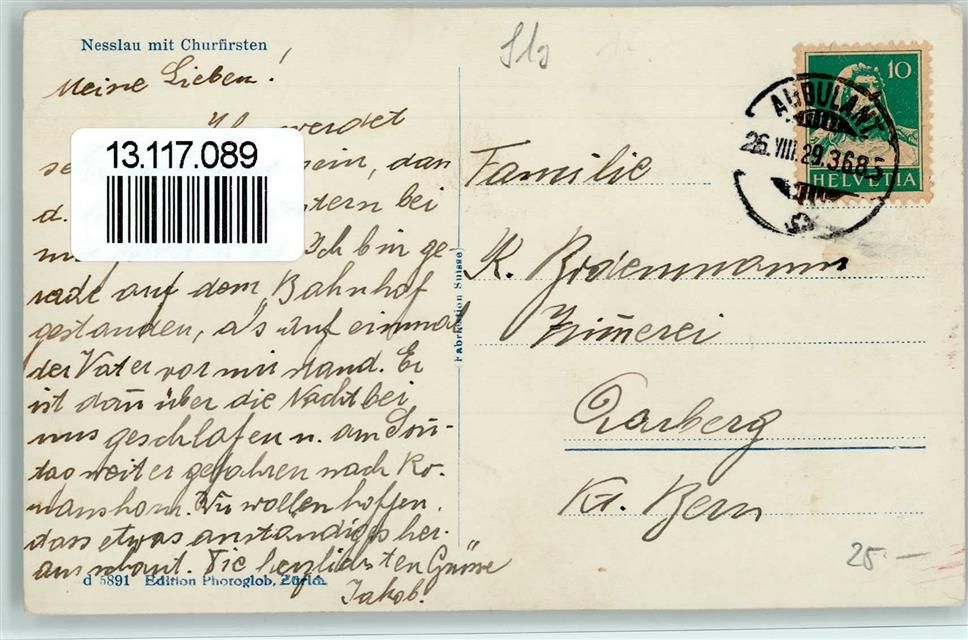 Nesslau mit Churfirsten
Meine Lieben!
Ihr werdet
se ein, dan
13.117.089
d. tern bei
Ich bin ge-
rade auf dem Bahnhof
gestanden, als auf einmal
der Vater vor mir stand. Er
ist dañ über die Nacht bei
uns geschlafen u. am Soñ-
tag weiter gefahren nach Ro-
manshorn. Wir wollen hoffen,
dass etwas anständiges her-
ausschaut. Die herzlichsten Grüsse
Jakob.
d 5891 Edition Photoglob, Zürich.
Fabrikation Suisse
10
HELVETIA
AMBULANT
26.VIII.29.3685
Familie
K. Bodenmann
Zim̄erei
Aarberg
Kt. Bern
25.-